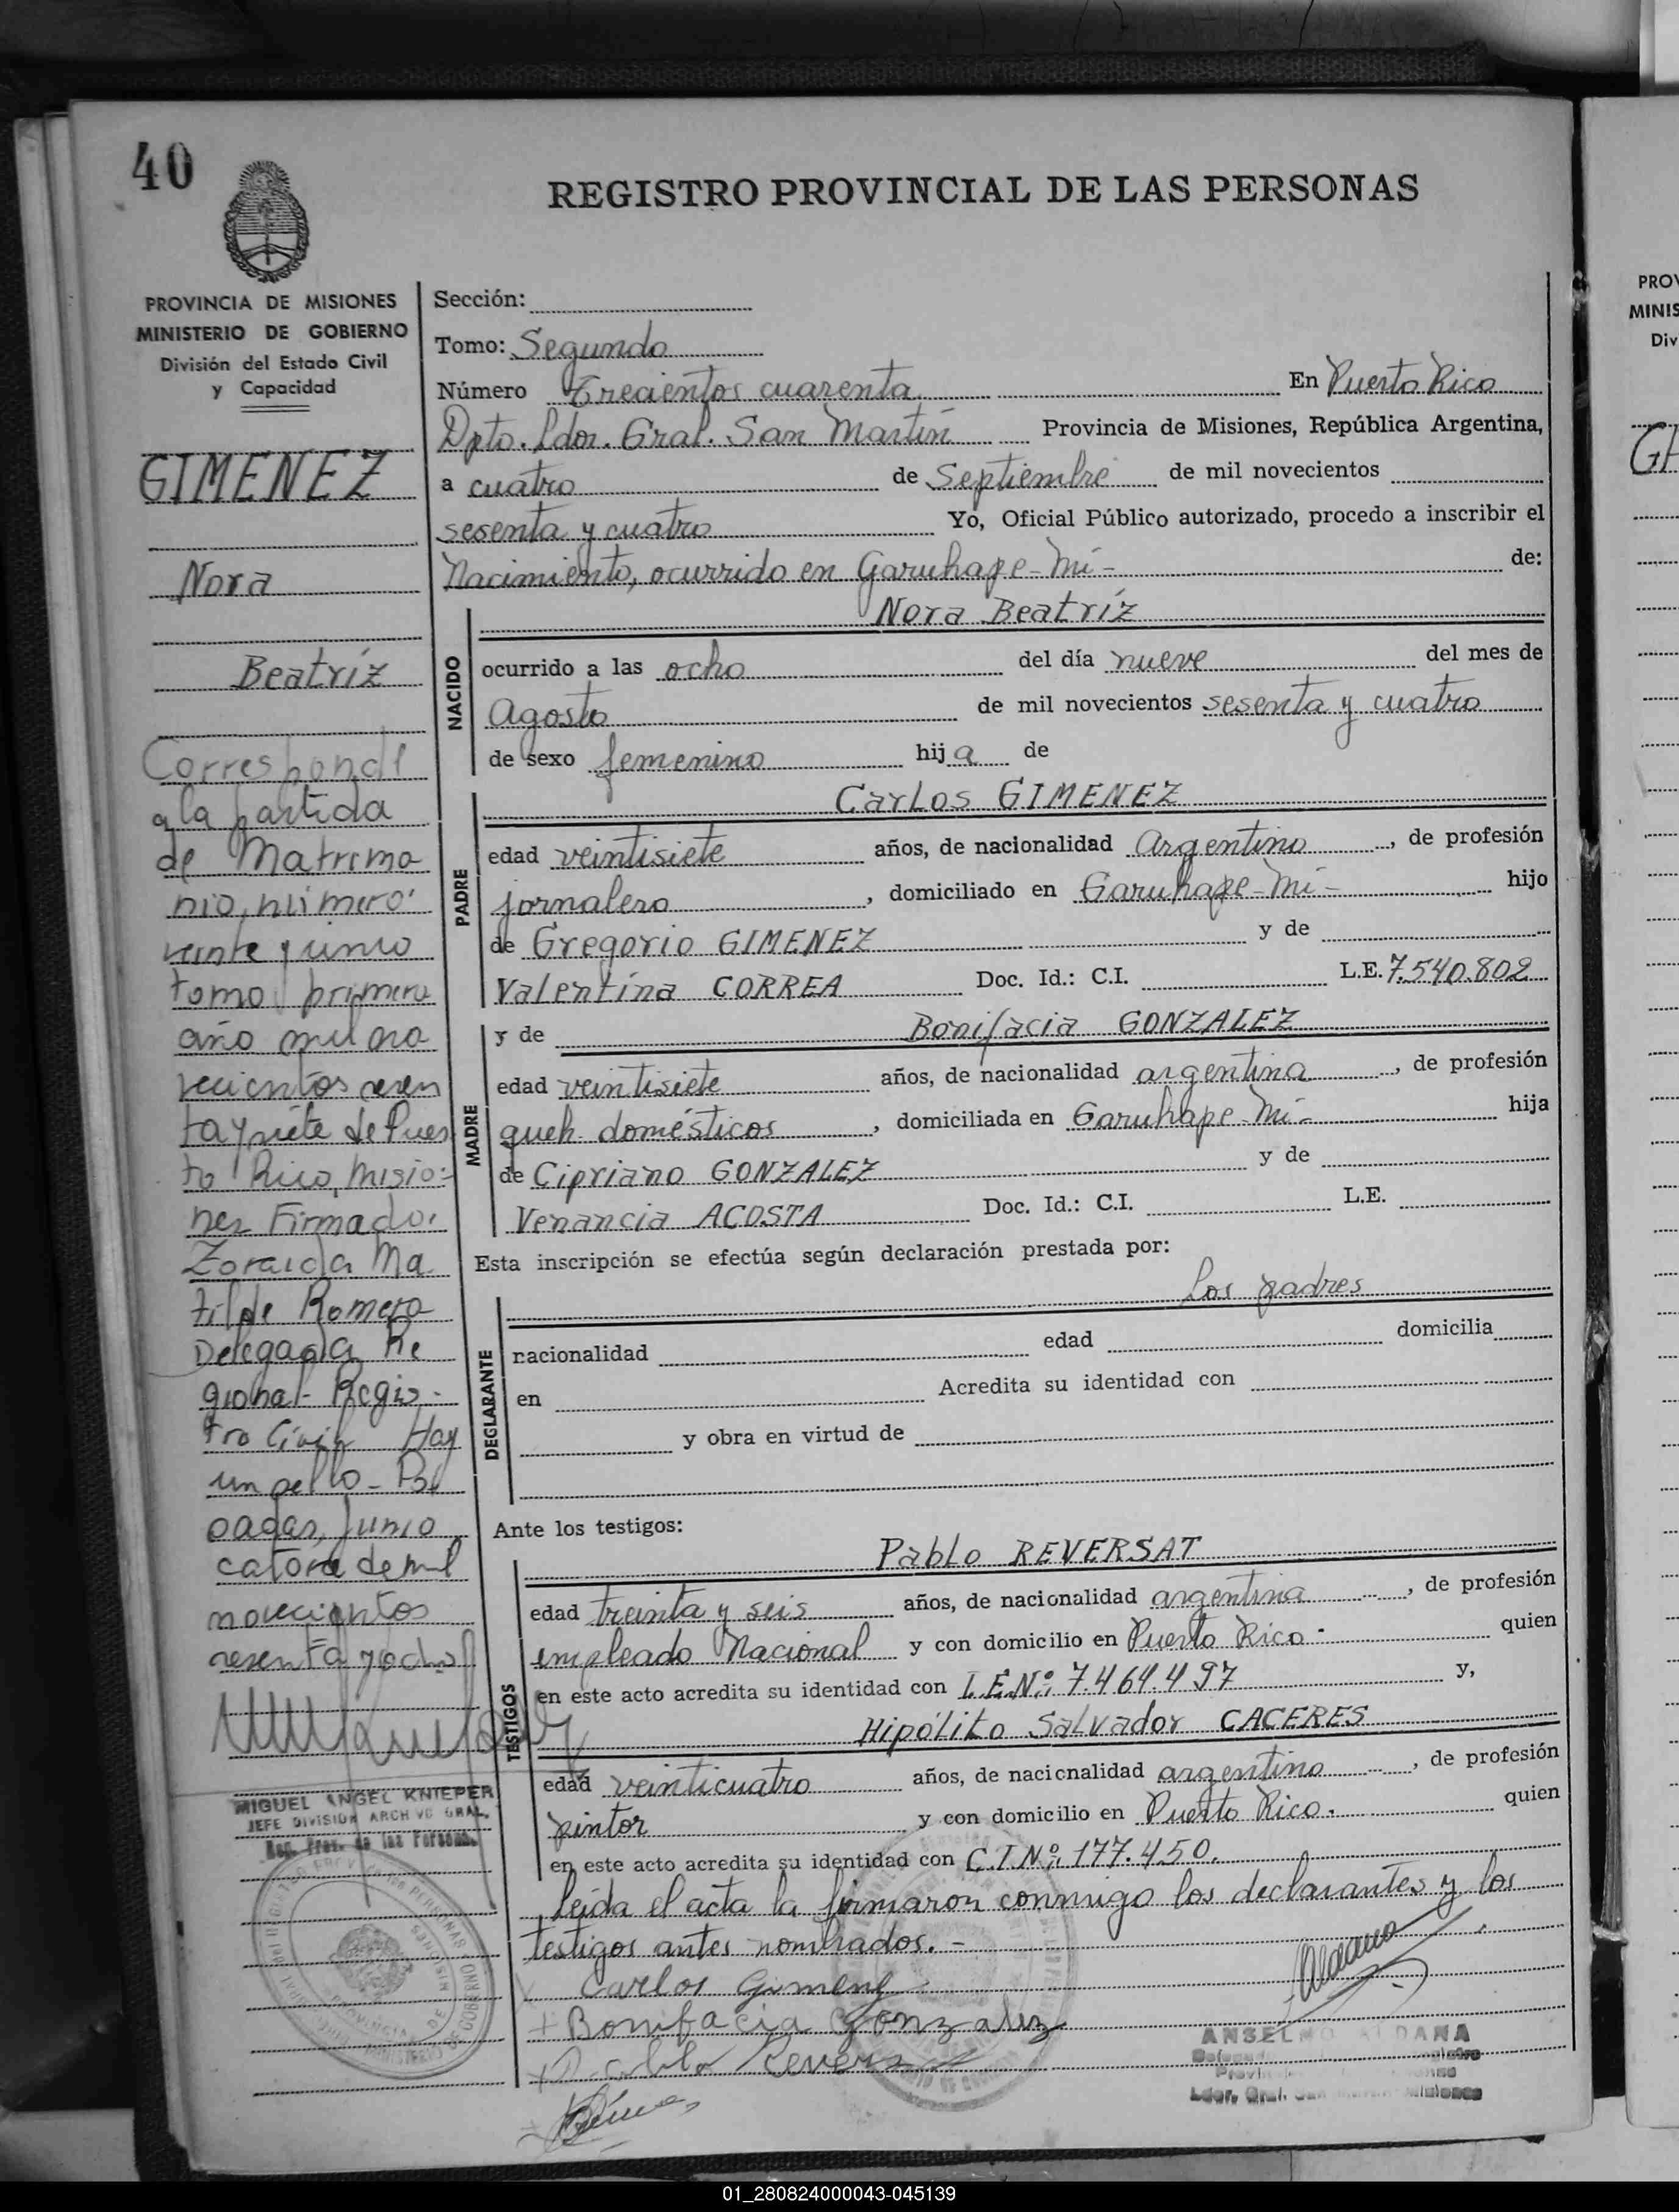 40
REGISTRO PROVINCIAL DE LAS PERSONAS
PROVINCIA DE MISIONES
MINISTERIO DE GOBIERNO
División del Estado Civil
y Capacidad
GIMENEZ
Nora
Beatríz
Corresponde
a la partida
de Matrimo
nio, número
veinte y cinco
tomo primero
año mil no
vecientos sesen
ta y siete de Puer
to Rico, Misio-
nes Firmado.
Zoraida Ma
tilde Romero
Delegada Re
gional- Regis-
tro Civil Hay
un sello - Po
sadas, Junio
catorce de mil
novecientos
sesenta y ocho
MIGUEL ANGEL KNIEPER
JEFE DIVISIÓN ARCHIVO GRAL.
Reg. Prov. de las Personas
Sección:
Tomo: Segundo
Número Trecientos cuarenta En Puerto Rico
Dpto. Ldor. Gral. San Martín Provincia de Misiones, República Argentina,
a cuatro de Septiembre de mil novecientos
sesenta y cuatro Yo, Oficial Público autorizado, procedo a inscribir el
Nacimiento, ocurrido en Garuhape-Mí- de:
Nora Beatríz
NACIDO
ocurrido a las ocho del día nueve del mes de
Agosto de mil novecientos sesenta y cuatro
de sexo femenino hija de
Carlos GIMENEZ
PADRE
edad veintisiete años, de nacionalidad Argentino, de profesión
jornalero, domiciliado en Garuhape-Mí- hijo
de Gregorio GIMENEZ y de
Valentina CORREA Doc. Id.: C.I. L.E. 7.540.802
y de Bonifacia GONZALEZ
MADRE
edad veintisiete años, de nacionalidad argentina, de profesión
queh. domésticos, domiciliada en Garuhape-Mí- hija
de Cipriano GONZALEZ y de
Venancia ACOSTA Doc. Id.: C.I. L.E.
Esta inscripción se efectúa según declaración prestada por:
los padres
DECLARANTE
nacionalidad edad domicilia
en Acredita su identidad con
y obra en virtud de
Ante los testigos:
Pablo REVERSAT
TESTIGOS
edad treinta y seis años, de nacionalidad argentina, de profesión
empleado Nacional y con domicilio en Puerto Rico- quien
en este acto acredita su identidad con L.E.Nº: 7.464.497 y,
Hipólito Salvador CACERES
edad veinticuatro años, de nacionalidad argentino, de profesión
pintor y con domicilio en Puerto Rico. quien
en este acto acredita su identidad con C.I.Nº: 177.450.
Leída el acta la firmaron conmigo los declarantes y los
testigos antes nombrados.-
Carlos Gimenez
+ Bonifacia Gonzalez
ANSELMO ALDANA
Ldor. Gral. San Martín Misiones
PROV
MINIS
Div
01_280824000043-045139